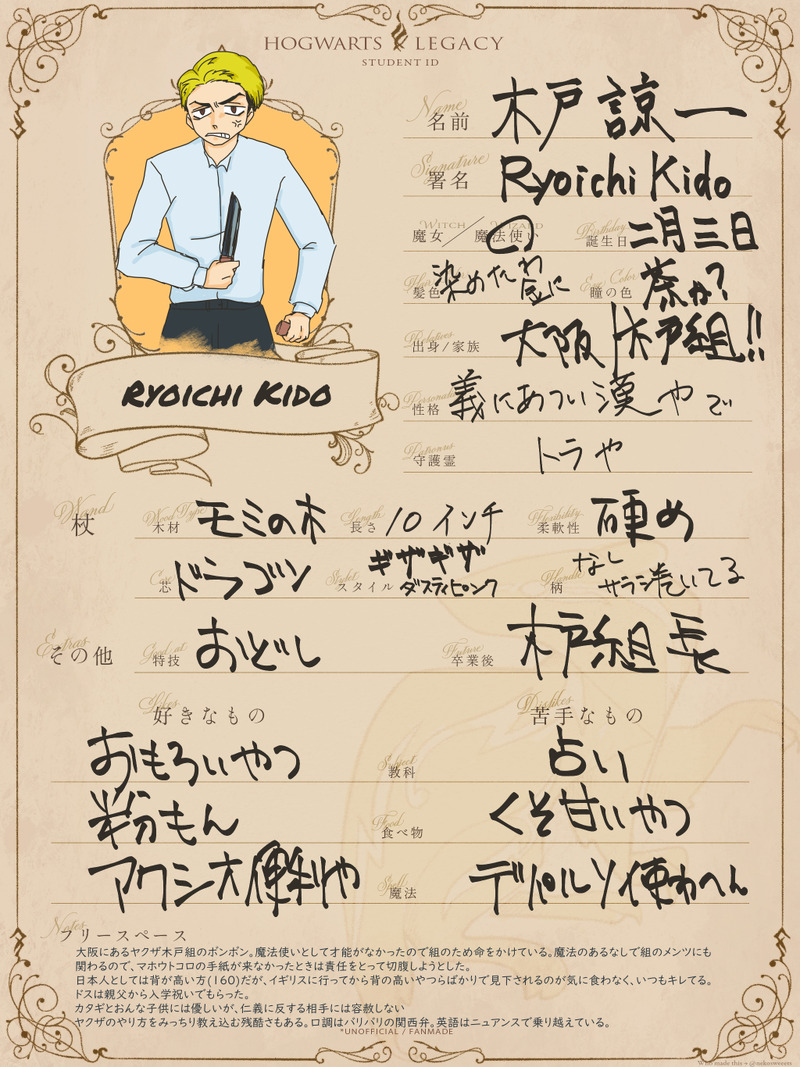 HOGWARTS LEGACY
STUDENT ID
Name 名前 木戸 諒一
Signature 署名 Ryoichi Kido
Witch Wizard
魔女／魔法使い Birthday 誕生日 二月三日
髪色 染めたわ 金に Eye Color 瞳の色 茶か?
Relatives 出身/家族 大阪 木戸組!!
Personality 性格 義にあつい漢やで
Patronus 守護霊 トラや
RYOICHI KIDO
Wand 杖 Wood Type 木材 モミの木 Length 長さ 10インチ Flexibility 柔軟性 硬め
Core 芯 ドラゴン Style スタイル ギザギザ ダスティピンク Handle 柄 なし サラシ巻いてる
Extras その他 Good at 特技 おどし Future 卒業後 木戸組長
Likes 好きなもの Dislikes 苦手なもの
おもろいやつ Subject 教科 占い
粉もん Food 食べ物 くそ甘いやつ
アクシオ便利や Spell 魔法 デパルソ使わへん
Notes フリースペース
大阪にあるヤクザ木戸組のボンボン。魔法使いとして才能がなかったので組のため命をかけている。魔法のあるなしで組のメンツにも
関わるので、マホウトコロの手紙が来なかったときは責任をとって切腹しようとした。
日本人としては背が高い方(160)だが、イギリスに行ってから背の高いやつらばかりで見下されるのが気に食わなく、いつもキレてる。
ドスは親父から入学祝いでもらった。
カタギとおんな子供には優しいが、仁義に反する相手には容赦しない
ヤクザのやり方をみっちり教え込む残酷さもある。口調はバリバリの関西弁。英語はニュアンスで乗り越えている。
*UNOFFICIAL / FANMADE